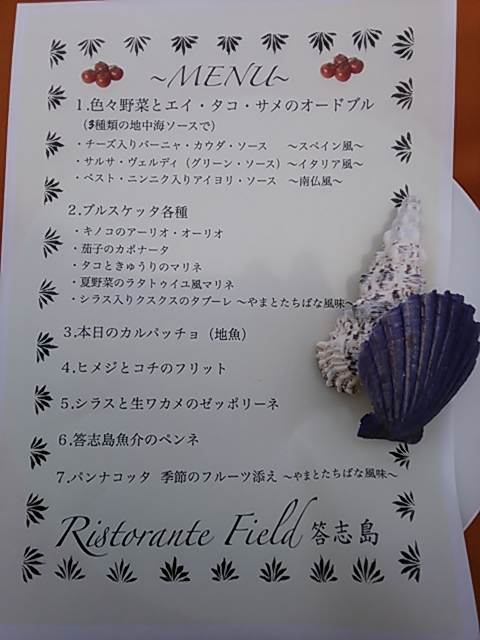 ~MENU~
1.色々野菜とエイ・タコ・サメのオードブル
(3種類の地中海ソースで)
・チーズ入りバーニャ・カウダ・ソース ～スペイン風～
・サルサ・ヴェルディ(グリーン・ソース)～イタリア風～
・ペスト・ニンニク入りアイヨリ・ソース ～南仏風～
2.ブルスケッタ各種
・キノコのアーリオ・オーリオ
・茄子のカポナータ
・タコときゅうりのマリネ
・夏野菜のラタトゥイユ風マリネ
・シラス入りクスクスのタブーレ ～やまとたちばな風味～
3.本日のカルパッチョ(地魚)
4.ヒメジとコチのフリット
5.シラスと生ワカメのゼッポリーネ
6.答志島魚介のペンネ
7.パンナコッタ 季節のフルーツ添え ～やまとたちばな風味～
Ristorante Field 答志島